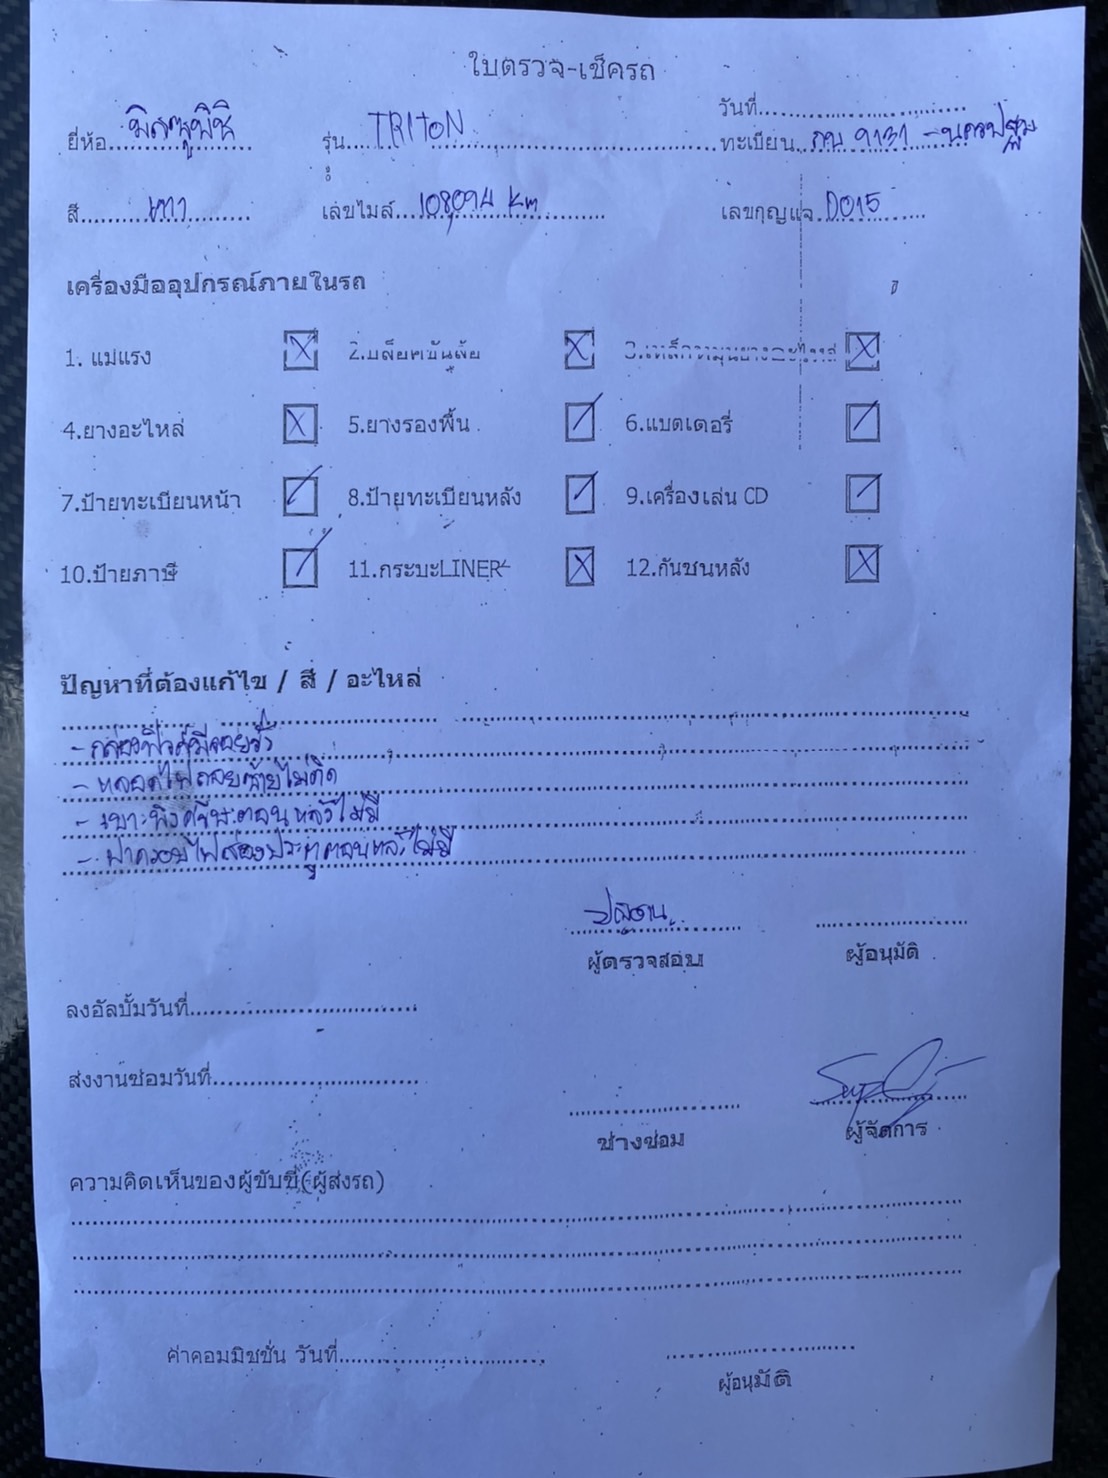 ใบตรวจ-เช็ครถ
วันที่
ยี่ห้อ มิตซูบิชิ รุ่น TRITON ทะเบียน 9131 - นครปฐม
สี เทา เลขไมล์ 108094 Km เลขกุญแจ D015
เครื่องมืออุปกรณ์ภายในรถ
1. แม่แรง X 2.บล็อคขันล้อ X 3.เหล็กหมุนยางอะไหล่ X
4.ยางอะไหล่ X 5.ยางรองพื้น / 6.แบตเตอรี่ /
7.ป้ายทะเบียนหน้า / 8.ป้ายทะเบียนหลัง / 9.เครื่องเล่น CD /
10.ป้ายภาษี / 11.กระบะLINER X 12.กันชนหลัง X
ปัญหาที่ต้องแก้ไข / สี / อะไหล่
- กล่องฟิวส์มีรอยรั่ว
- หลอดไฟถอยซ้ายไม่ติด
- เบาะพิงศรีษะตอนหลังไม่มี
- ฝาครอบไฟส่องประตูตอนหลังไม่มี
ผู้ตรวจสอบ ผู้อนุมัติ
ลงอัลบั้มวันที่
ส่งงานซ่อมวันที่
ช่างซ่อม ผู้จัดการ
ความคิดเห็นของผู้ขับขี่(ผู้ส่งรถ)
ค่าคอมมิชชั่น วันที่
ผู้อนุมัติ